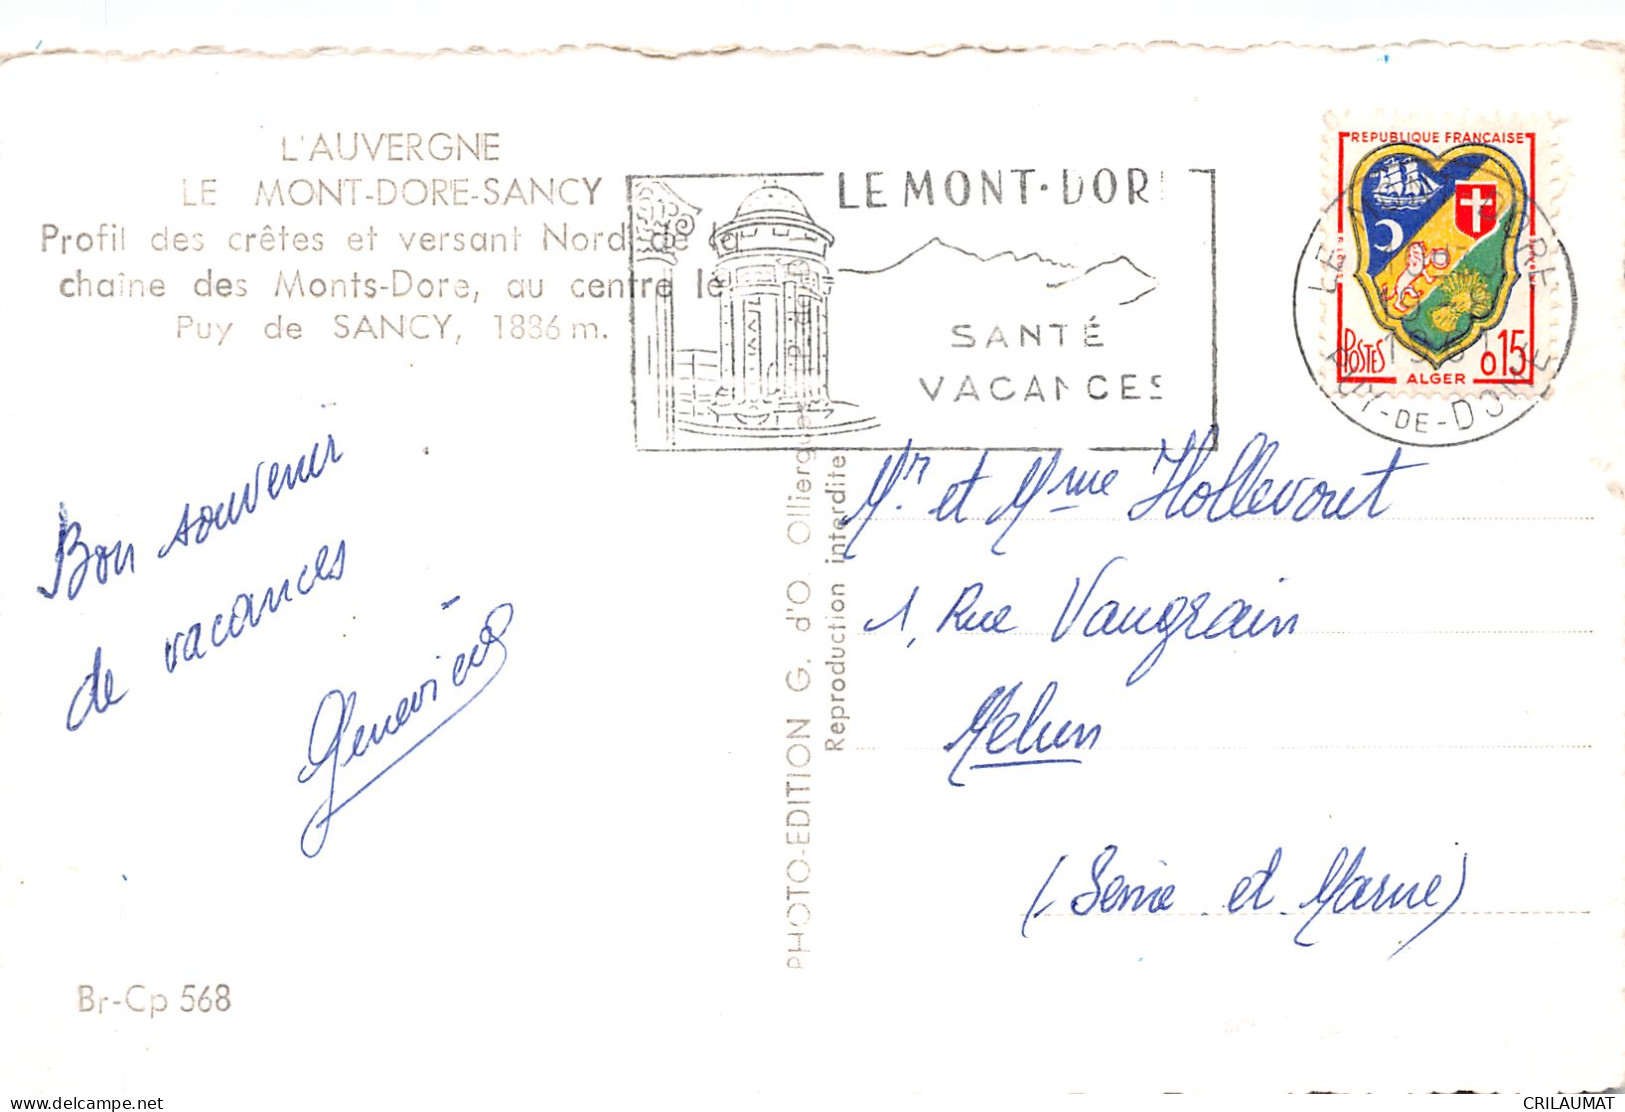 L'AUVERGNE
LE MONT-DORE-SANCY
Profil des crêtes et versant Nord de la
chaîne des Monts-Dore, au centre le
Puy de SANCY, 1886 m.
LE MONT-DORE
SANTÉ
VACANCES
REPUBLIQUE FRANÇAISE
POSTES
0,15
ALGER
LE MONT-DORE
1961
PUY-DE-DOME
Bon souvenir
de vacances
Geneviève
PHOTO-EDITION G. d'O. Olliergues P. de D.
Reproduction interdite
Mr et Mme Hollevout
1, Rue Vaugrain
Melun
(Seine et Marne)
Br-Cp 568
CRILAUMAT